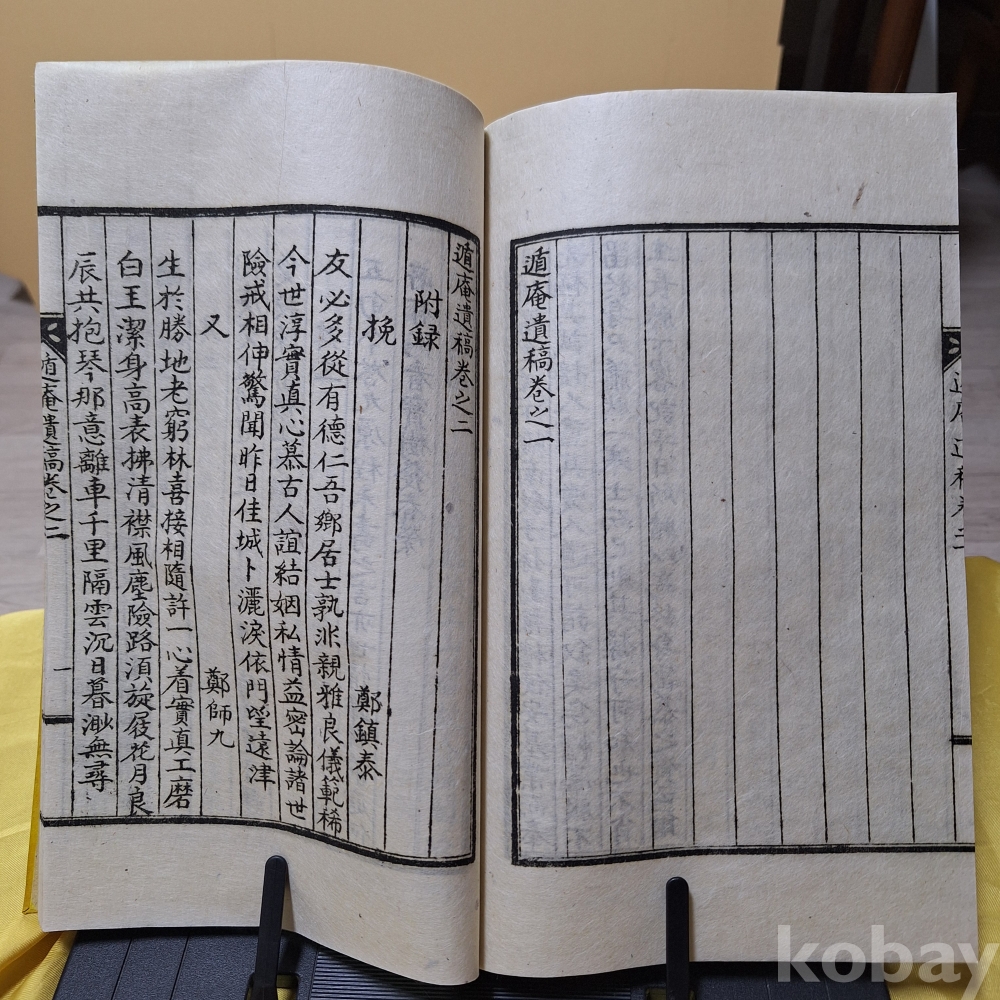 遁庵遺稿卷之一
遁庵遺稿卷之二
附録
挽
鄭鎮泰
友必多從有德仁吾鄉居士孰非親雅良儀範稀
今世淳實真心慕古人誼結姻私情益密論諸世
險戒相伸驚聞昨日佳城卜灑淚依門望遠津
又
鄭師九
生於勝地老窮林喜接相隨許一心着實真工磨
白玉潔身高表拂清襟風塵險路須旋屐花月良
辰共抱琴那意離車千里隔雲沉日暮渺無尋
遁庵遺稿卷之二
一
kobay